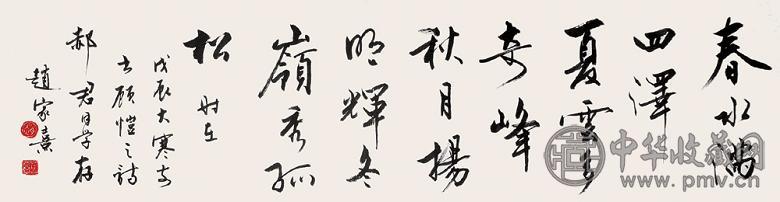 春水满
四泽
夏云多
奇峰
秋月揚
明輝冬
嶺秀孤
松 时在
戊辰大寒書
顾愷之詩
郝君同学存
趙家熹
中华收藏网
www.pmv.cn